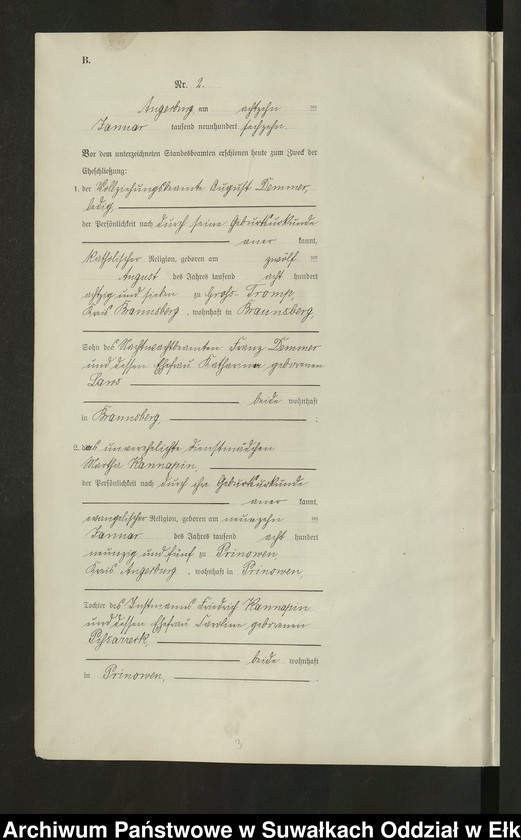 B.
Nr. 2.
Angerburg am achtzehn ten
Januar tausend neunhundert sechzehn.
Vor dem unterzeichneten Standesbeamten erschienen heute zum Zweck der
Eheschließung:
1. der Vollziehungsbeamte August Demmer,
ledig,
der Persönlichkeit nach durch seine Geburtsurkunde
aner kannt,
katholischer Religion, geboren am zwölf ten
August des Jahres tausend acht hundert
achtzig und sieben zu Groß-Tromp,
Kreis Braunsberg, wohnhaft in Braunsberg,
Sohn des Nachtwachtbeamten Franz Demmer
und dessen Ehefrau Katharina geborenen
beide wohnhaft
in Braunsberg, ;
2. das unverehelichte Dienstmädchen
Martha Kannapin,
der Persönlichkeit nach durch ihre Geburtsurkunde
aner kannt,
evangelischer Religion, geboren am neunzehn ten
Januar des Jahres tausend acht hundert
neunzig und fünf zu Prinowen,
Kreis Angerburg, wohnhaft in Prinowen,
Tochter des Instmanns Friedrich Kannapin
und dessen Ehefrau Caroline geborenen
beide wohnhaft
in Prinowen, .
3
Archiwum Państwowe w Suwałkach Oddział w Ełku